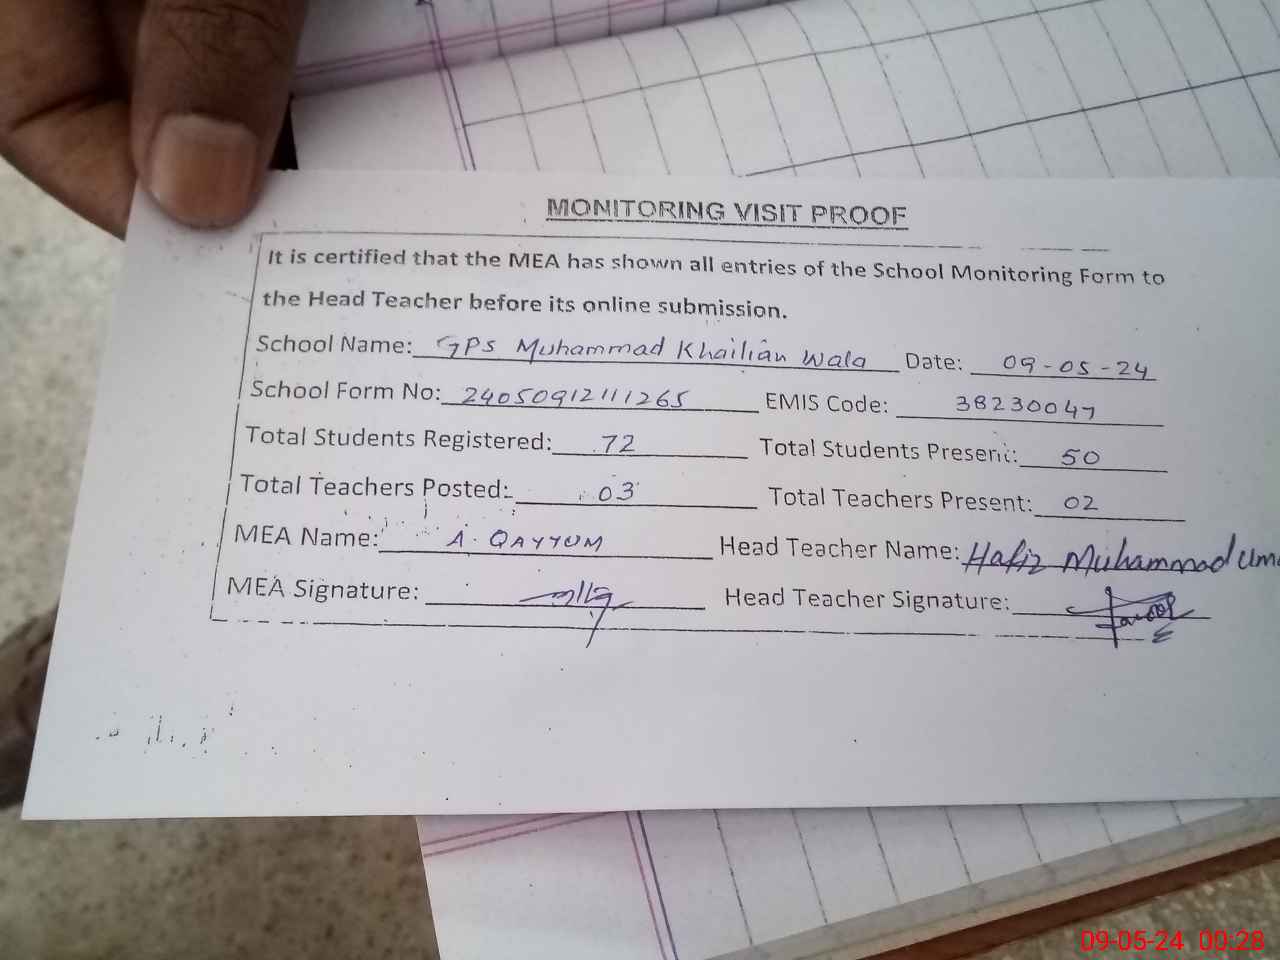 MONITORING VISIT PROOF
It is certified that the MEA has shown all entries of the School Monitoring Form to
the Head Teacher before its online submission.
School Name: GPS Muhammad Khailian Wala Date: 09-05-24
School Form No: 24050912111265 EMIS Code: 38230047
Total Students Registered: 72 Total Students Present: 50
Total Teachers Posted: 03 Total Teachers Present: 02
MEA Name: A. QAYYUM Head Teacher Name: Hafiz Muhammad Uma
MEA Signature: Head Teacher Signature:
09-05-24 00:28